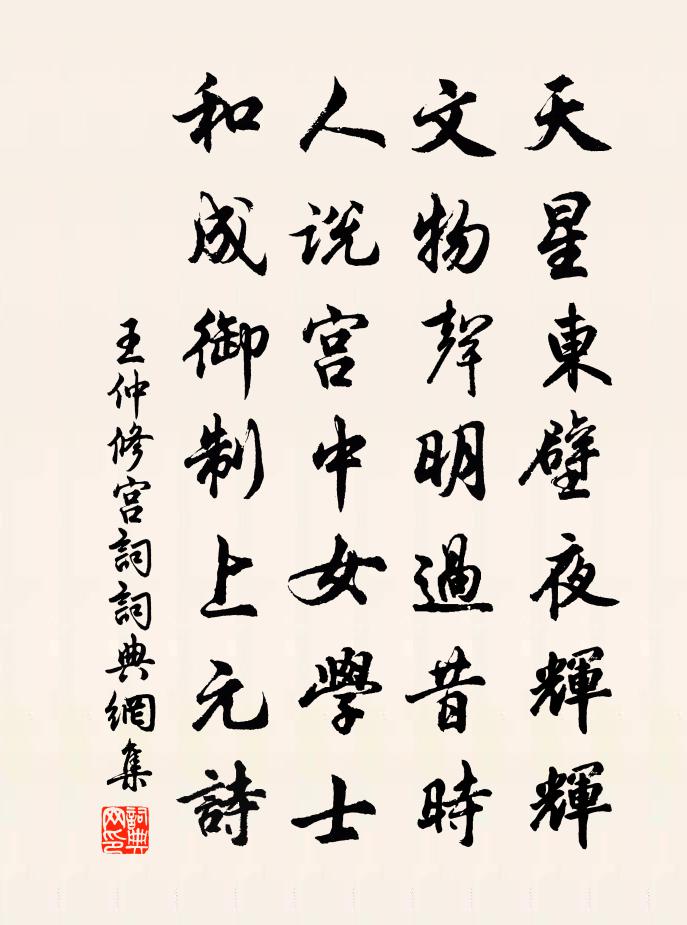 天星東壁夜輝輝
文物聲明過昔時
人説宮中女學士
和成御制上元詩
王仲修宮詞詞典網集
詞典
网印